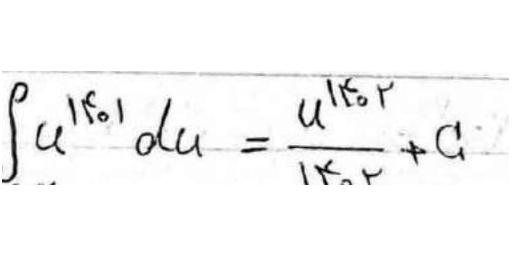 ∫ u^۱۴۰۱ du = u^۱۴۰۲ / ۱۴۰۲ + C